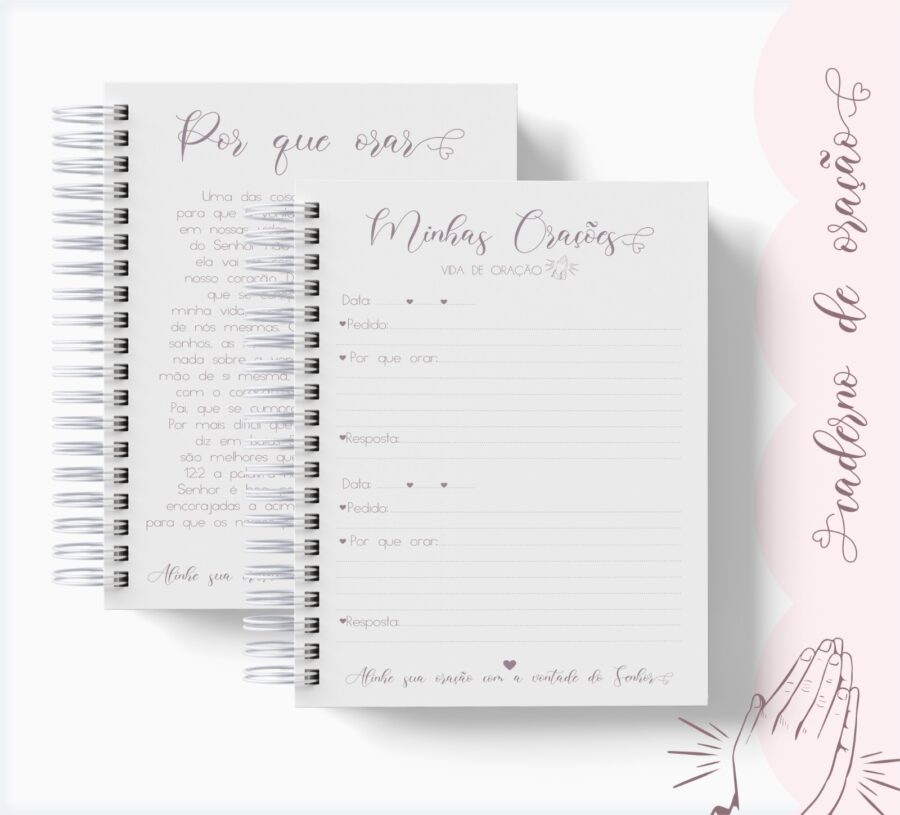 Por que orar
Uma das cois
para que a
em nossas vidas
do Senhor não
ela vai
nosso coração D
que se
minha vida,
de nós mesmas.
sonhos, as
nada sobre a
mão de si mesma,
com o
Pai, que se cumpra
Por mais difícil que
diz em
são melhores que
12:2 a palavra
Senhor é
encorajadas a
para que os
Alinhe sua
Minhas Orações
VIDA DE ORAÇÃO
Data:
Pedido:
Por que orar:
Resposta:
Data:
Pedido:
Por que orar:
Resposta:
Alinhe sua oração com a vontade do Senhor
caderno de oração